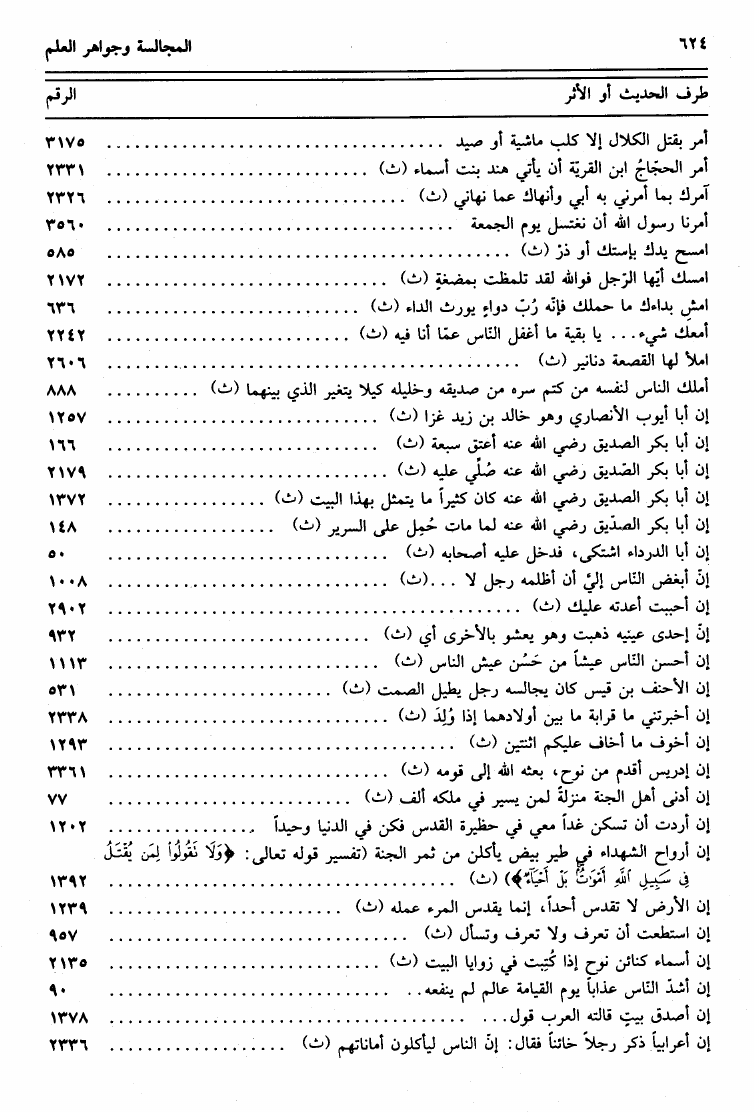 ٦٢٤ المجالسة وجواهر العلم
طرف الحديث أو الأثر الرقم
أمر بقتل الكلاب إلا كلب ماشية أو صيد ........ ٣١٧٥
أمر الحجّاجُ ابن القريّة أن يأتي هند بنت أسماء (ث) ........ ٢٣٣١
آمرك بما أمرني به أبي وأنهاك عما نهاني (ث) ........ ٢٣٢٦
أمرنا رسول الله أن نغتسل يوم الجمعة ........ ٣٥٦٠
امسح يدك بإستك أو ذرْ (ث) ........ ٥٨٥
امسك أيّها الرّجل فوالله لقد تلمظت بمضغةٍ (ث) ........ ٢١٧٢
امشِ بداءك ما حملك فإنّه رُبّ دواءٍ يورث الداء (ث) ........ ٦٣٦
أمعك شيء... يا بقية ما أغفل النّاس عمّا أنا فيه (ث) ........ ٢٢٤٢
املأ لها القصعة دنانير (ث) ........ ٢٦٠٦
أملك الناس لنفسه من كتم سره من صديقه وخليله كيلا يتغير الذي بينهما (ث) ........ ٨٨٨
إن أبا أيوب الأنصاري وهو خالد بن زيد غزا (ث) ........ ١٢٥٧
إن أبا بكر الصديق رضي الله عنه أعتق سبعة (ث) ........ ١٦٦
إن أبا بكر الصّديق رضي الله عنه صُلِّي عليه (ث) ........ ٢١٧٩
إن أبا بكر الصديق رضي الله عنه كان كثيراً ما يتمثل بهذا البيت (ث) ........ ١٣٧٢
إن أبا بكر الصدّيق رضي الله عنه لما مات حُمِل على السرير (ث) ........ ١٤٨
إن أبا الدرداء اشتكى، فدخل عليه أصحابه (ث) ........ ٥٠
إنّ أبغض النّاس إليّ أن أظلمه رجل لا ...(ث) ........ ١٠٠٨
إن أحببت أعدته عليك (ث) ........ ٢٩٠٢
إنّ إحدى عينيه ذهبت وهو يعشو بالأخرى أي (ث) ........ ٩٣٢
إن أحسن النّاس عيشاً من حَسُن عيش الناس (ث) ........ ١١١٣
إن الأحنف بن قيس كان يجالسه رجل يطيل الصمت (ث) ........ ٥٣١
إن أخبرتني ما قرابة ما بين أولادهما إذا وُلِدَ (ث) ........ ٢٣٣٨
إن أخوف ما أخاف عليكم اثنتين (ث) ........ ١٢٩٣
إن إدريس أقدم من نوح، بعثه الله إلى قومه (ث) ........ ٣٣٦١
إن أدنى أهل الجنة منزلةً لمن يسير في ملكه ألف (ث) ........ ٧٧
إن أردت أن تسكن غداً معي في حظيرة القدس فكن في الدنيا وحيداً ........ ١٢٠٢
إن أرواح الشهداء في طير بيض يأكلن من ثمر الجنة (تفسير قوله تعالى: ﴿وَلَا تَقُولُوا لِمَن يُقْتَلُ
فِي سَبِيلِ اللَّهِ أَمْوَاتٌ بَلْ أَحْيَاءٌ﴾) (ث) ........ ١٣٩٢
إن الأرض لا تقدس أحداً، إنما يقدس المرء عمله (ث) ........ ١٢٣٩
إن استطعت أن تعرف ولا تعرف وتسأل (ث) ........ ٩٥٧
إن أسماء كنائن نوح إذا كُتِبت في زوايا البيت (ث) ........ ٢١٣٥
إن أشدّ النّاس عذاباً يوم القيامة عالم لم ينفعه.. ........ ٩٠
إن أصدق بيتٍ قالته العرب قول... ........ ١٣٧٨
إن أعرابياً ذكر رجلاً خائناً فقال: إنّ الناس ليأكلون أماناتهم (ث) ........ ٢٣٣٦